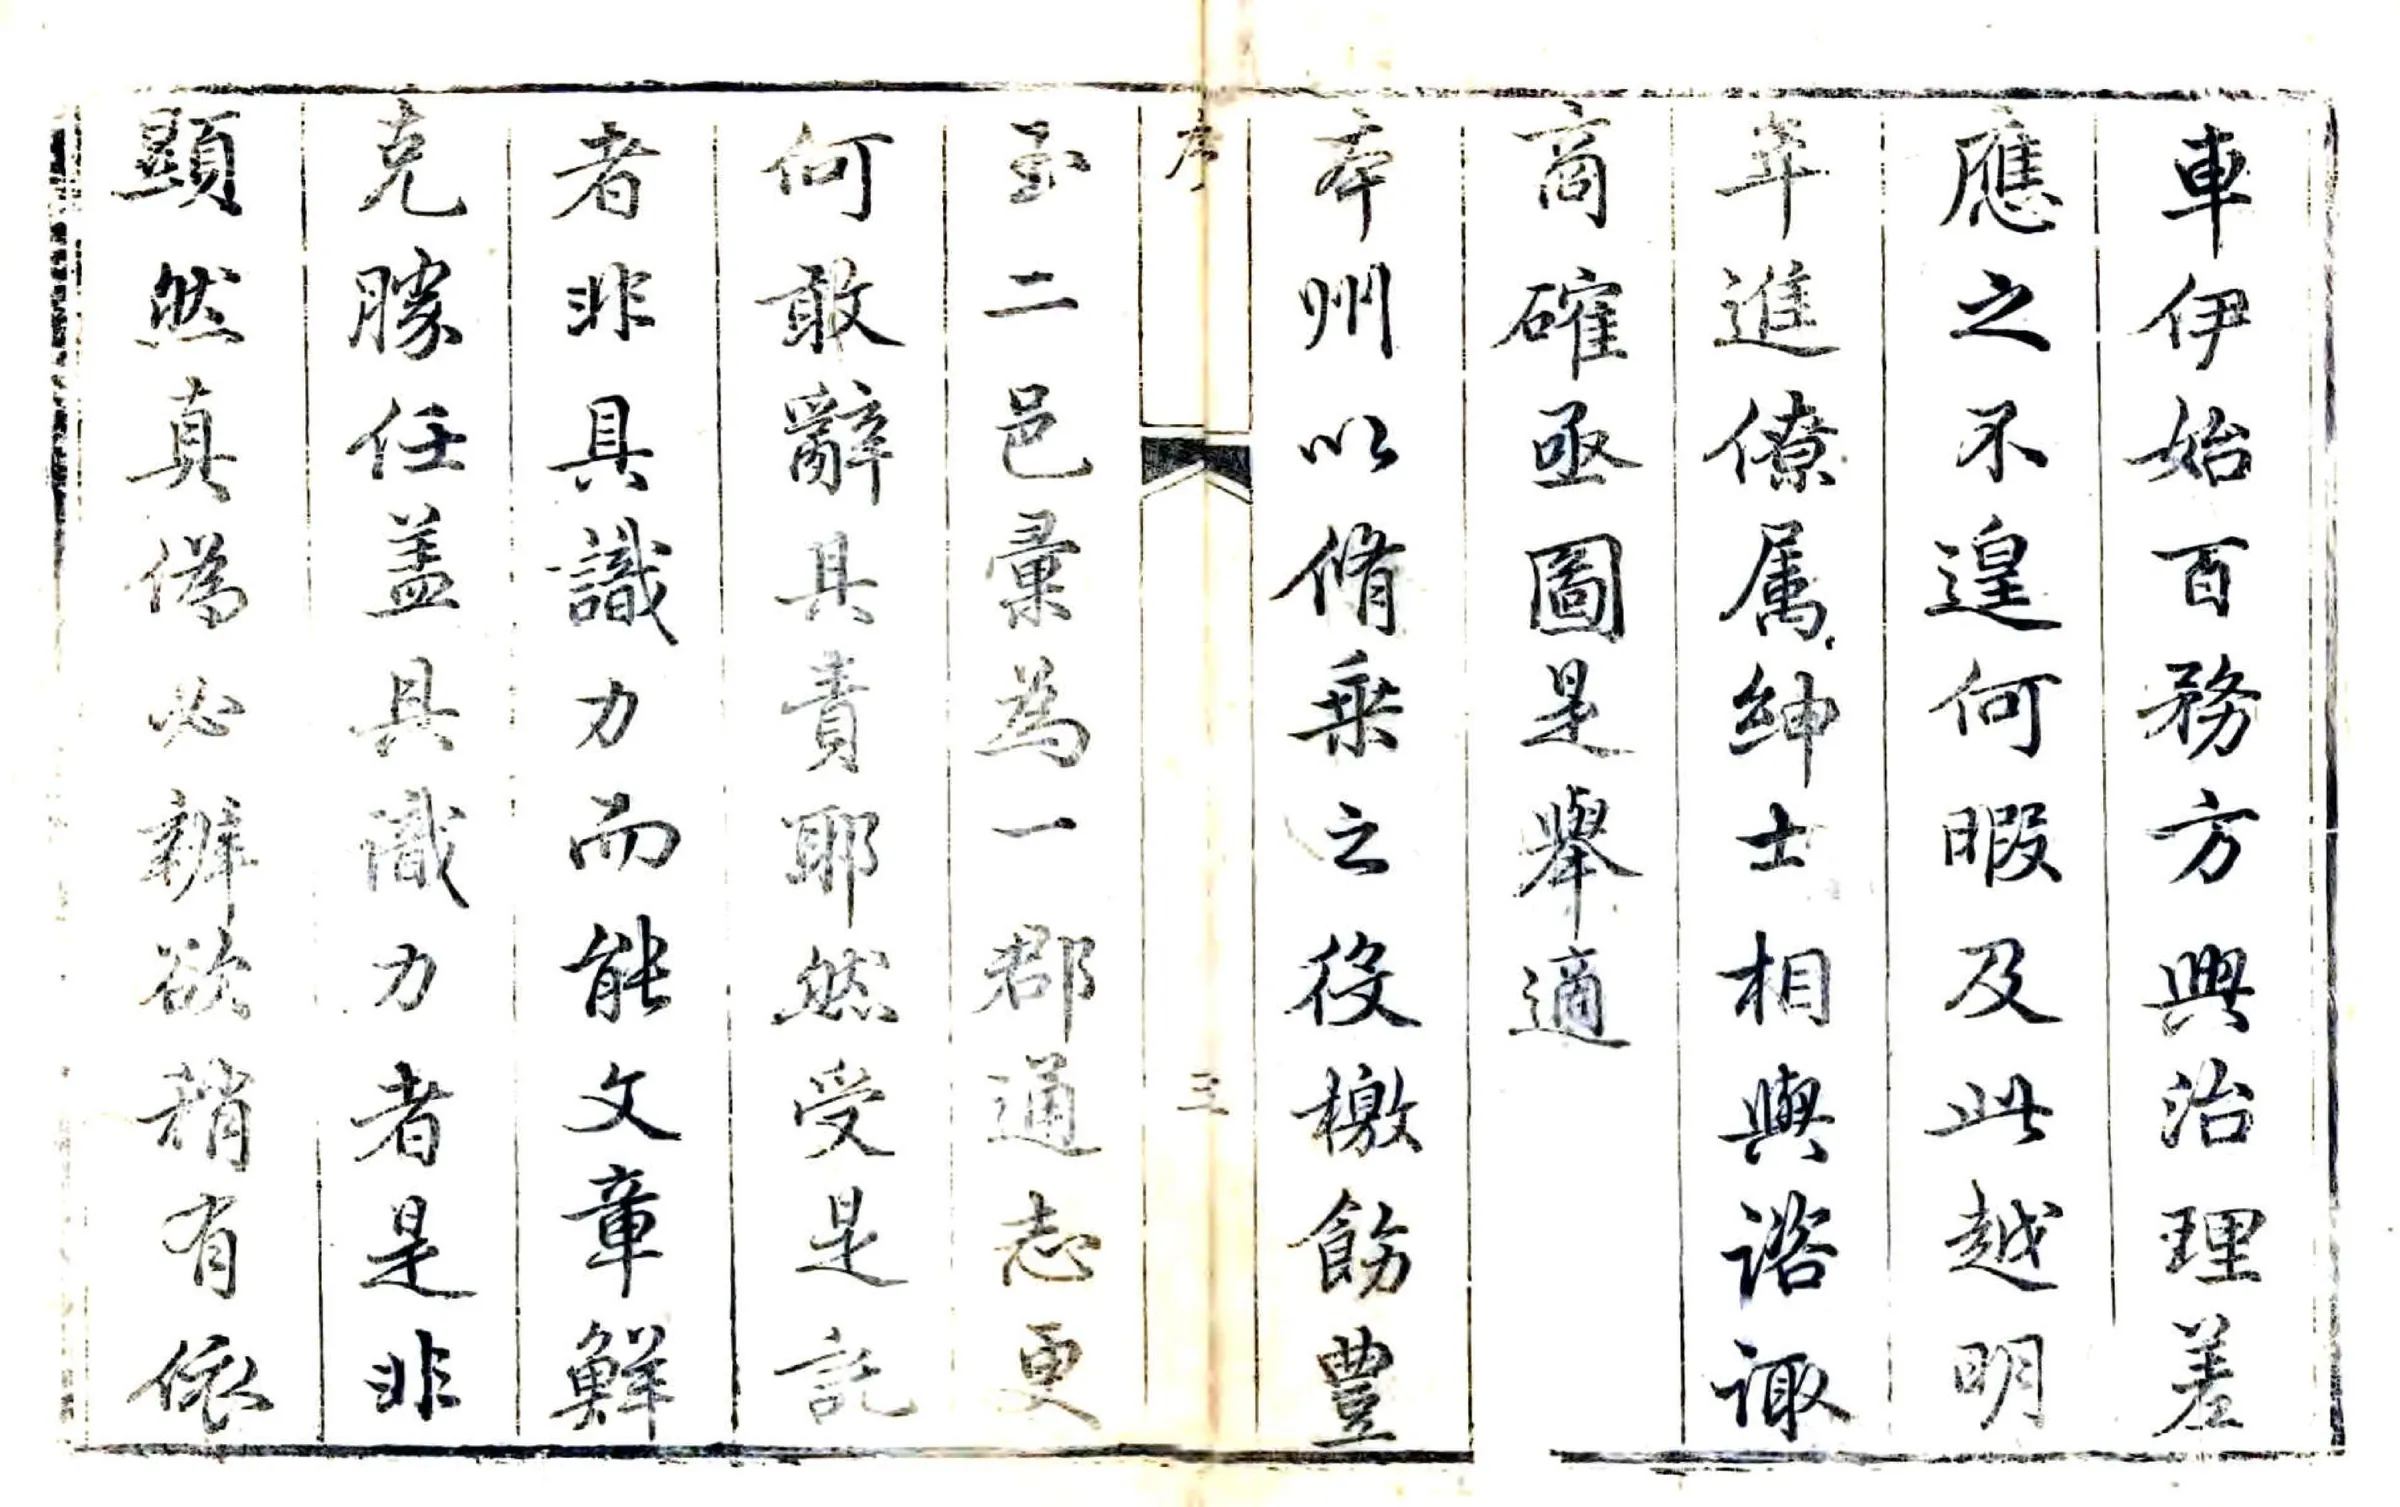 車伊始百務方興治理差
應之不遑何暇及此越明
年進僚属紳士相與諮諏
商確亟圖是舉適
本州以脩乗之役檄飭豊
序
三
玉二邑彙為一郡通志更
何敢辭其責耶然受是託
者非具識力而能文章鮮
克勝任盖具識力者是非
顕然真偽必辨欲稍有依